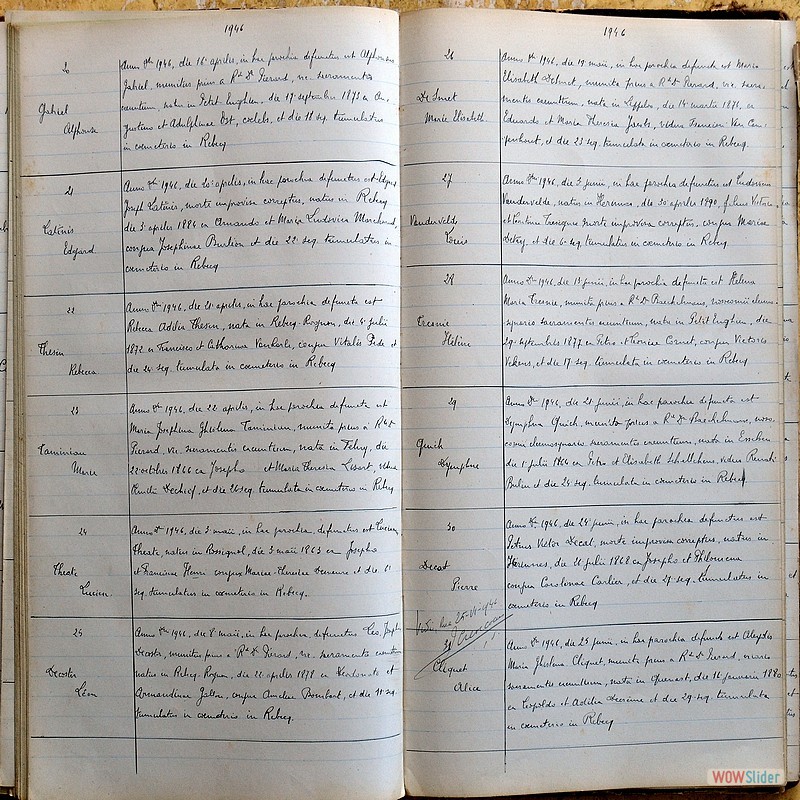 1946
20
Gabriel
Alphonse
Anno Dni 1946, die 16 aprilis, in hac parochia defunctus est Alphonsus
Gabriel, munitus prius a Rdo Do Pierard, vic. sacramentis
exeuntium, natus in Petit Enghien, die 17 septembris 1873 ex Au-
gustino et Adolphina Ost, coelebs, et die 18 seq. tumulatus
in coemeterio in Rebecq
21
Latinis
Edgard
Anno Dni 1946, die 20 aprilis, in hac parochia defunctus est Edgard
Joseph Latinis, morte improvisa correptus, natus in Rebecq
die 3 aprilis 1884 ex Armando et Maria Ludovica Marchand,
conjux Josephinae Burlion et die 22 seq. tumulatus in
coemeterio in Rebecq
22
Thesin
Rebecca
Anno Dni 1946, die 21 aprilis, in hac parochia defuncta est
Rebecca Adilia Thesin, nata in Rebecq-Rognon, die 4 julii
1872 ex Francisco et Catharina conjux Vitalis et
die 24 seq. tumulata in coemeterio in Rebecq
23
Taminiau
Marie
Anno Dni 1946, die 22 aprilis, in hac parochia defuncta est
Maria Josephina Ghislena Taminiau, munita prius a Rdo Do
Pierard, vic. sacramentis exeuntium, nata in Feluy, die
22 octobris 1866 ex Josepho et Maria Theresia vidua
et die 24 seq. tumulata in coemeterio in Rebecq
24
Theate
Lucien
Anno Dni 1946, die 3 maii, in hac parochia, defunctus est Lucien
Theate, natus in Bossignol, die 3 maii 1863 ex Josepho
et Francisca Henri conjux Mariae-Theresiae et die
seq. tumulatus in coemeterio in Rebecq.
25
Decoster
Léon
Anno Dni 1946, die 8 maii, in hac parochia defunctus Leo Joseph
Decoster, munitus prius a Rdo Do Pierard, vic. sacramentis exeuntium
natus in Rebecq-Rognon, die 20 aprilis 1878 ex et
Armandina conjux Ameliae Bombaert, et die 11 seq.
tumulatus in coemeterio in Rebecq.
1946
26
De Smet
Marie Elisabeth
Anno Dni 1946, die 19 maii, in hac parochia defuncta est Maria
Elisabeth De Smet, munita prius a Rdo Do Pierard, vic. sacra-
mentis exeuntium, nata in die 14 martii 1873, ex
Eduardo et Maria Theresia vidua Francisci Van Cau-
et die 23 seq. tumulata in coemeterio in Rebecq.
27
Vandervelde
Louis
Anno Dni 1946, die 3 junii, in hac parochia defunctus est Ludovicus
Vandervelde, natus in Herinnes, die 30 aprilis 1890, filius Victoris
et morte improvisa correptus, conjux Mariae
Detry, et die 6 seq. tumulatus in coemeterio in Rebecq
28
Cresnie
Hélène
Anno Dni 1946, die 13 junii, in hac parochia defuncta est Helena
Maria Cresnie, munita prius a Rdo Do Raeckelmans, nosocomii eleemo-
synario sacramentis exeuntium, nata in Petit Enghien, die
29 septembris 1877 ex Petro et Leonia Cornet, conjux Victoris
Vekens, et die 17 seq. tumulata in coemeterio in Rebecq
29
Quich
Dymphne
Anno Dni 1946, die 21 junii, in hac parochia defuncta est
Dymphna Quich, munita prius a Rdo Do Raeckelmans, noso-
comii eleemosynario sacramentis exeuntium, nata in
die 1 julii 1866 ex Petro et Elisabeth vidua
et die 24 seq. tumulata in coemeterio in Rebecq
30
Decat
Pierre
Anno Dni 1946, die 24 junii, in hac parochia defunctus est
Petrus Victor Decat, morte improvisa correptus, natus in
Herinnes, die 26 julii 1868 ex Josepho et Philomena
conjux Carolinae Carlier, et die 27 seq. tumulatus in
coemeterio in Rebecq
31
Cliquet
Alice
Anno Dni 1946, die 25 junii, in hac parochia defuncta est
Maria Ghislena Cliquet, munita prius a Rdo Do Pierard, vicario
sacramentis exeuntium, nata in Quenast, die 16 januarii 1880
ex Leopoldo et Adilia et die 29 seq. tumulata
in coemeterio in Rebecq
WOWSlider